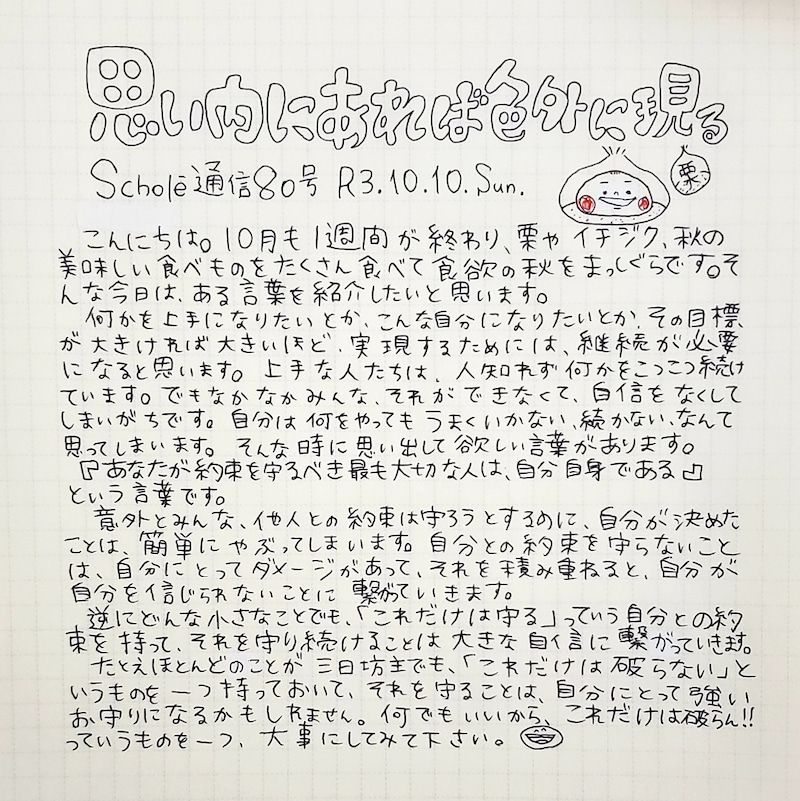 思い内にあれば色外に現る
Scholē通信80号 R3.10.10.Sun.
栗
こんにちは。10月も1週間が終わり、栗やイチジク、秋の
美味しい食べものをたくさん食べて食欲の秋をまっしぐらです。そ
んな今日は、ある言葉を紹介したいと思います。
何かを上手になりたいとか、こんな自分になりたいとか、その目標
が大きければ大きいほど、実現するためには、継続が必要
になると思います。上手な人たちは、人知れず何かをこつこつ続け
ています。でもなかなかみんな、それができなくて、自信をなくして
しまいがちです。自分は何をやってもうまくいかない、続かない、なんて
思ってしまいます。そんな時に思い出して欲しい言葉があります。
『あなたが約束を守るべき最も大切な人は、自分自身である』
という言葉です。
意外とみんな、他人との約束は守ろうとするのに、自分が決めた
ことは、簡単にやぶってしまいます。自分との約束を守らないこと
は、自分にとってダメージがあって、それを積み重ねると、自分が
自分を信じられないことに繋がっていきます。
逆にどんな小さなことでも、「これだけは守る」っていう自分との約
束を持って、それを守り続けることは大きな自信に繋がっていきます。
たとえほとんどのことが三日坊主でも、「これだけは破らない」と
いうものを一つ持っておいて、それを守ることは、自分にとって強い
お守りになるかもしれません。何でもいいから、これだけは破らん!!
っていうものを一つ、大事にしてみて下さい。